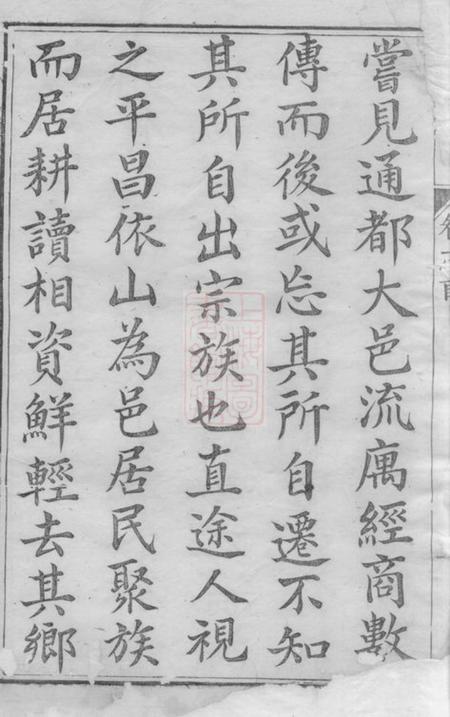 嘗見通都大邑流寓經商數
傳而後或忘其所自遷不知
其所自出宗族也直途人視
之平昌依山為邑居民聚族
而居耕讀相資鮮輕去其鄉